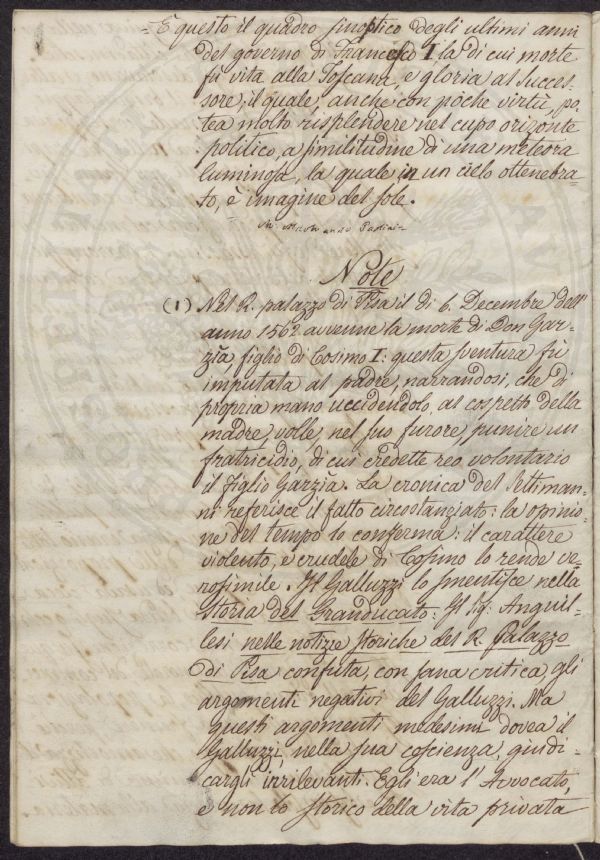 = E questo il quadro sinoptico degli ultimi anni
del governo di Francesco I la di cui morte
fù vita alla Toscana, e gloria al succes-
sore, il quale, anche con poche virtù, po-
tea molto risplendere nel cupo orizonte
politico, a similitudine di una meteora
luminosa, la quale in un cielo ottenebra-
to, è imagine del sole.
Note
(1) Nel R. palazzo di Pisa il dì 6. Decembre dell'
anno 1562 avvenne la morte di Don Gar-
zìa figlio di Cosimo I: questa sventura fù
imputata al padre, narrandosi, che di
propria mano uccidendolo, al cospetto della
madre, volle, nel suo furore, punire un
fratricidio, di cui credette reo volontario
il figlio Garzìa. La cronica del Settiman-
ni referisce il fatto circostanziato: la opinio-
ne del tempo lo conferma: il carattere
violento, e crudele di Cosimo lo rende ve-
rosimile. Il Galluzzi lo smentisce nella
storia del Granducato: Il Sig. Anguil-
lesi nelle notizie storiche del R. Palazzo
di Pisa confuta, con sana critica, gli
argomenti negativi del Galluzzi. Ma
questi argomenti medesimi dovea il
Galluzzi, nella sua coscienza, giudi-
cargli irrilevanti. Egli era l'Avvocato,
e non lo storico della vita privata